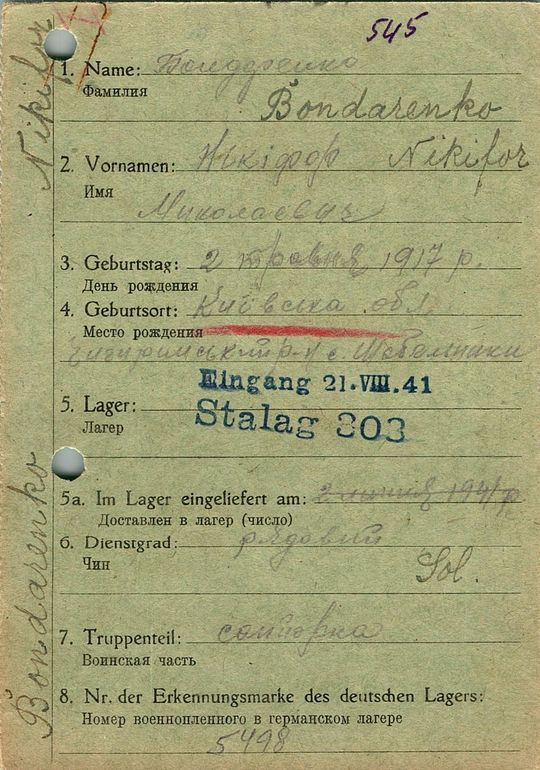 545
1. Name: Бондаренко
Фамилия
Bondarenko
2. Vornamen: Нікіфор Nikifor
Имя
Миколаевич
3. Geburtstag: 2 травня 1917 р.
День рождения
4. Geburtsort: Київська обл.
Место рождения
р-н с.
Eingang 21.VIII.41
5. Lager: Stalag 303
Лагер
5a. Im Lager eingeliefert am: 2 липня 1941 р
Доставлен в лагер (число)
6. Dienstgrad: рядовий
Чин
Sol.
7. Truppenteil:
Воинская часть
8. Nr. der Erkennungsmarke des deutschen Lagers:
Номер военнопленного в германском лагере
5498
Bondarenko Nikifor